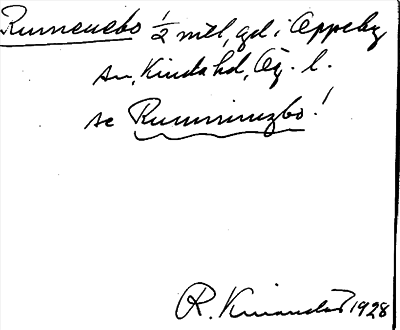 Rumenebo ½ mtl, gd i Oppeby
sn, Kinda hd, Ög. l.
se Rumminngbo!
R. 1928